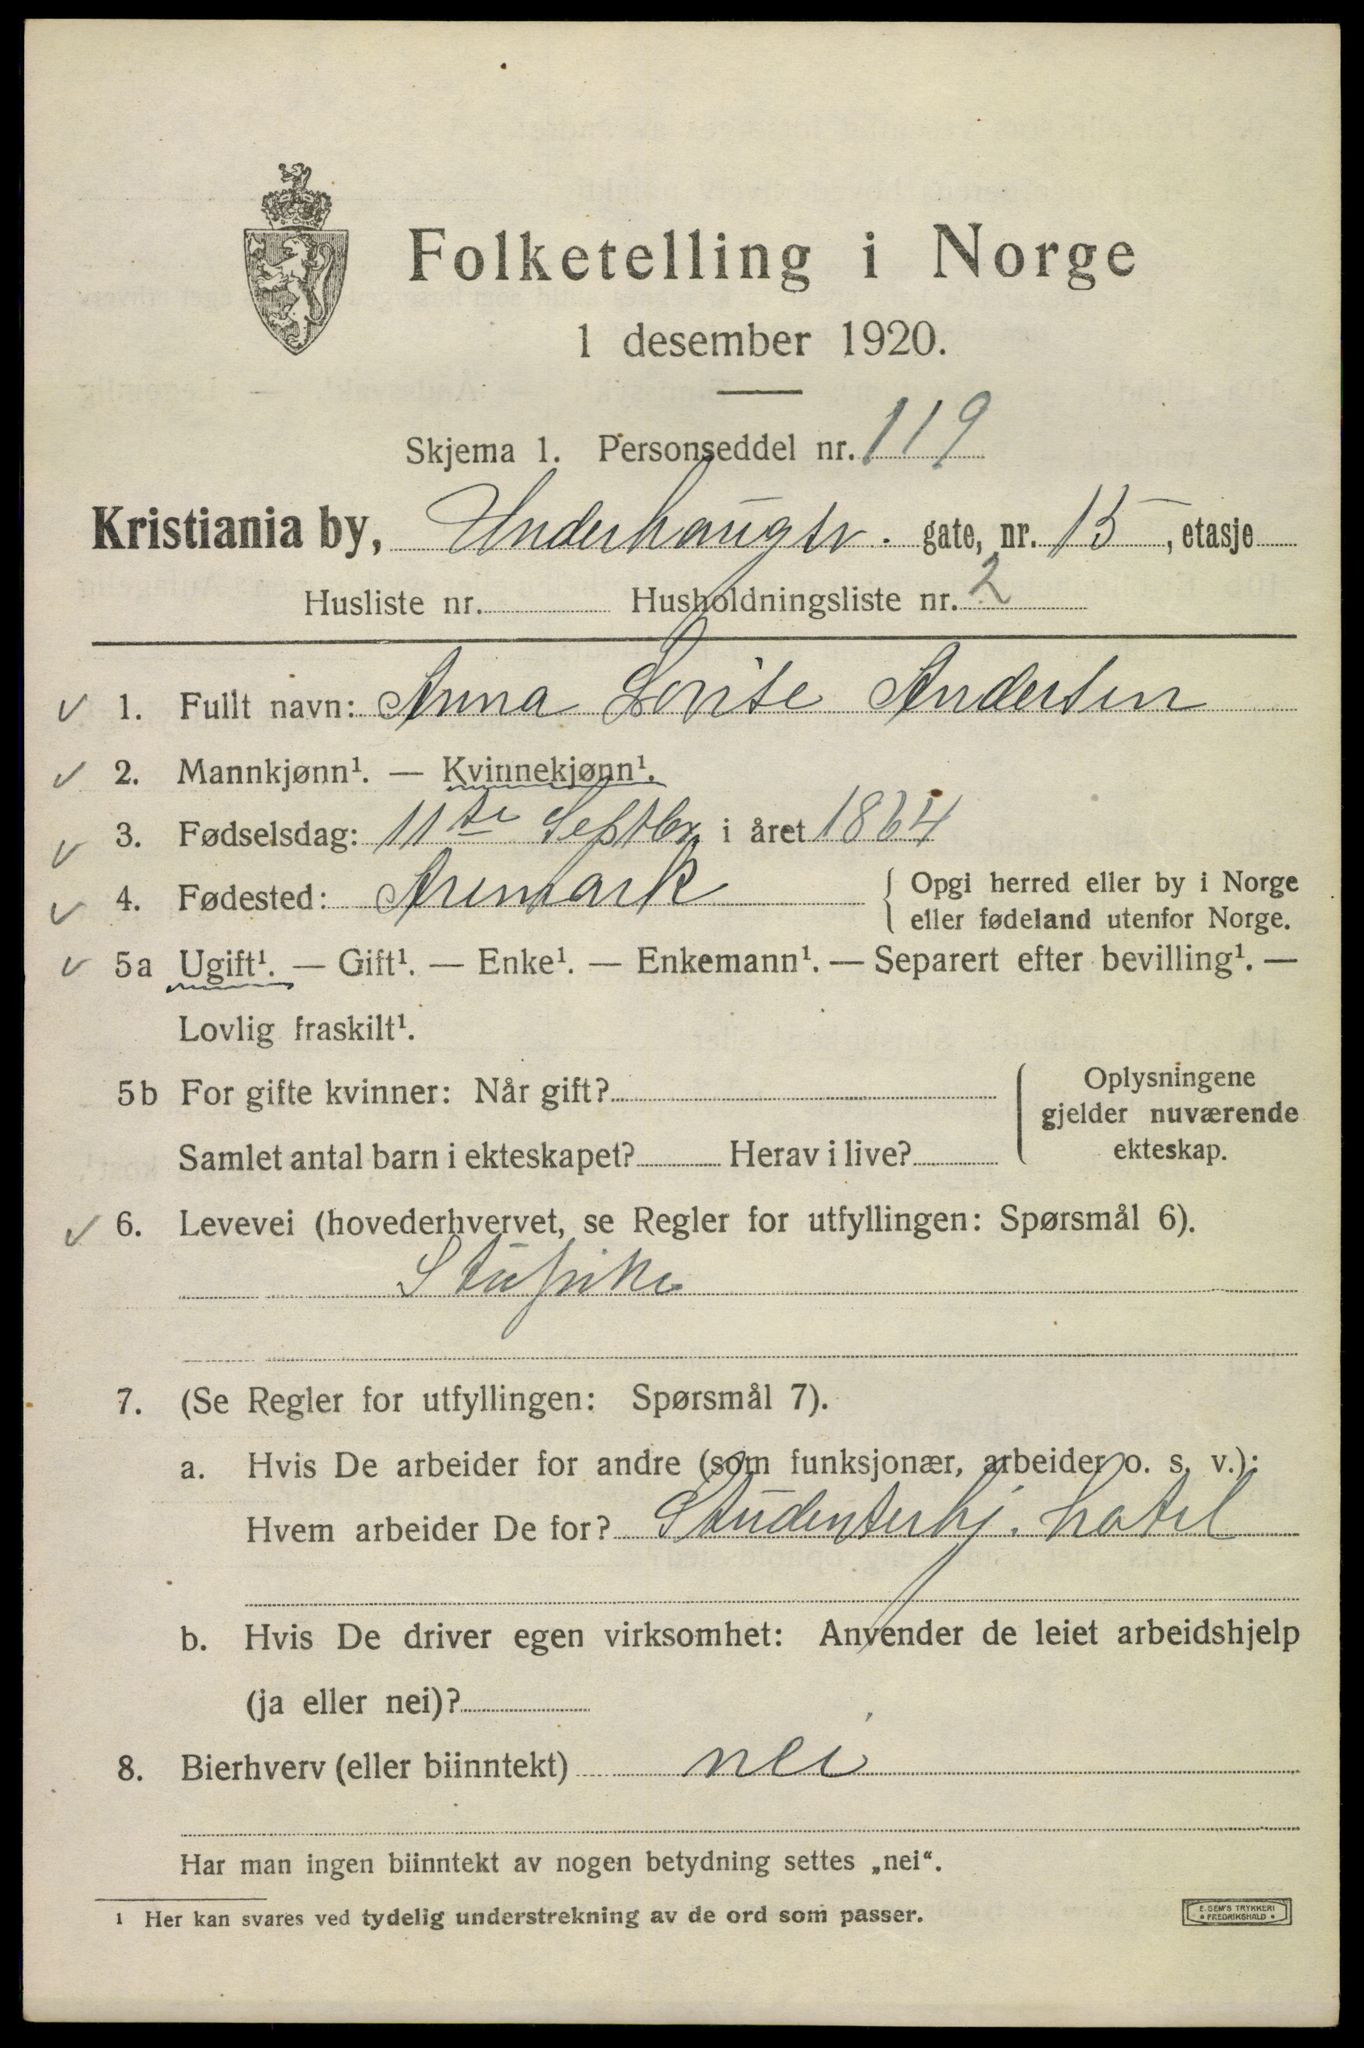 Folketelling i Norge
1 desember 1920.
Skjema 1. Personseddel nr. 119
Kristiania by, Underhaugsv. gate, nr. 15, etasje
Husliste nr. Husholdningsliste nr. 2
1. Fullt navn: Anna Lovise Andersen
2. Mannkjønn¹. — Kvinnekjønn¹.
3. Fødselsdag: 11te Septbr i året 1864
4. Fødested: Aremark { Opgi herred eller by i Norge
eller fødeland utenfor Norge.
5a Ugift¹. — Gift¹. — Enke¹. — Enkemann¹. — Separert efter bevilling¹. —
Lovlig fraskilt¹.
5b For gifte kvinner: Når gift?
Samlet antal barn i ekteskapet? Herav i live?
Oplysningene
gjelder nuværende
ekteskap.
6. Levevei (hovederhvervet, se Regler for utfyllingen: Spørsmål 6).
Stupike
7. (Se Regler for utfyllingen: Spørsmål 7).
a. Hvis De arbeider for andre (som funksjonær, arbeider o. s. v.):
Hvem arbeider De for? Studenterhj. hotel
b. Hvis De driver egen virksomhet: Anvender de leiet arbeidshjelp
(ja eller nei)?
8. Bierhverv (eller biinntekt) nei
Har man ingen biinntekt av nogen betydning settes „nei“.
¹ Her kan svares ved tydelig understrekning av de ord som passer.
E. SEM'S TRYKKERI
• FREDRIKSHALD •